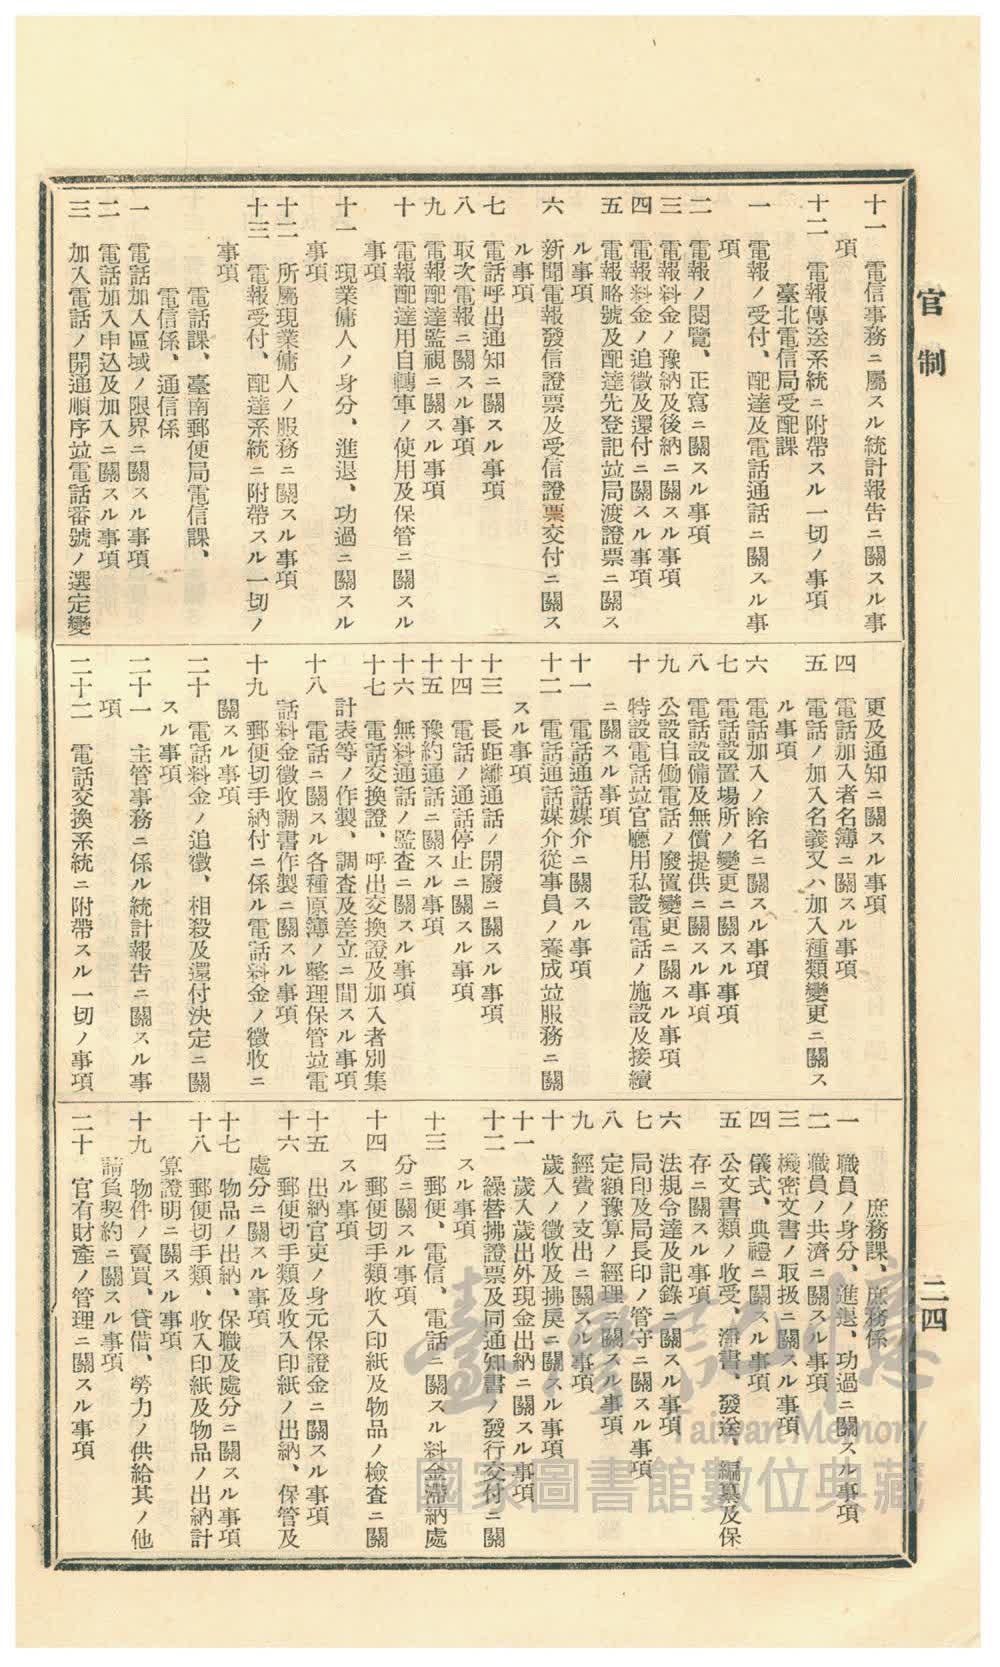 官制
二四
十一　電信事務ニ屬スル統計報告ニ關スル事
項
十二　電報傳送系統ニ附帶スル一切ノ事項
臺北電信局受配課
一　電報ノ受付、配達及電話通話ニ關スル事
項
二　電報ノ閱覽、正寫ニ關スル事項
三　電報料金ノ豫納及後納ニ關スル事項
四　電報料金ノ追徵及還付ニ關スル事項
五　電報略號及配達先登記竝局渡證票ニ關ス
ル事項
六　新聞電報發信證票及受信證票交付ニ關ス
ル事項
七　電話呼出通知ニ關スル事項
八　取次電報ニ關スル事項
九　電報配達監視ニ關スル事項
十　電報配達用自轉車ノ使用及保管ニ關スル
事項
十一　現業傭人ノ身分、進退、功過ニ關スル
事項
十二　所屬現業傭人ノ服務ニ關スル事項
十三　電報受付、配達系統ニ附帶スル一切ノ
事項
電話課、臺南郵便局電信課、
電信係、通信係
一　電話加入區域ノ限界ニ關スル事項
二　電話加入申込及加入ニ關スル事項
三　加入電話ノ開通順序竝電話番號ノ選定變
更及通知ニ關スル事項
四　電話加入者名簿ニ關スル事項
五　電話ノ加入名義又ハ加入種類變更ニ關ス
ル事項
六　電話加入ノ除名ニ關スル事項
七　電話設置場所ノ變更ニ關スル事項
八　電話設備及無償提供ニ關スル事項
九　公設自働電話ノ廢置變更ニ關スル事項
十　特設電話竝官廳用私設電話ノ施設及接續
ニ關スル事項
十一　電話通話媒介ニ關スル事項
十二　電話通話媒介從事員ノ養成竝服務ニ關
スル事項
十三　長距離通話ノ開廢ニ關スル事項
十四　電話ノ通話停止ニ關スル事項
十五　豫約通話ニ關スル事項
十六　無料通話ノ監査ニ關スル事項
十七　電話交換證、呼出交換證及加入者別集
計表等ノ作製、調查及差立ニ間スル事項
十八　電話ニ關スル各種原簿ノ整理保管竝電
話料金徵收調書作製ニ關スル事項
十九　郵便切手納付ニ係ル電話料金ノ徵收ニ
關スル事項
二十　電話料金ノ追徵、相殺及還付決定ニ關
スル事項
二十一　主管事務ニ係ル統計報告ニ關スル事
項
二十二　電話交換系統ニ附帶スル一切ノ事項
庶務課、庶務係
一　職員ノ身分、進退、功過ニ關スル事項
二　職員ノ共濟ニ關スル事項
三　機密文書ノ取扱ニ關スル事項
四　儀式、典禮ニ關スル事項
五　公文書類ノ收受、淨書、發送、編纂及保
存ニ關スル事項
六　法規令達及記錄ニ關スル事項
七　局印及局長印ノ管守ニ關スル事項
八　定額豫算ノ經理ニ關スル事項
九　經費ノ支出ニ關スル事項
十　歲入ノ徵收及拂戾ニ關スル事項
十一　歲入歲出外現金出納ニ關スル事項
十二　繰替拂證票及同通知書ノ發行交付ニ關
スル事項
十三　郵便、電信、電話ニ關スル料金滯納處
分ニ關スル事項
十四　郵便切手類收入印紙及物品ノ檢査ニ關
スル事項
十五　出納官吏ノ身元保證金ニ關スル事項
十六　郵便切手類及收入印紙ノ出納、保管及
處分ニ關スル事項
十七　物品ノ出納、保職及處分ニ關スル事項
十八　郵便切手類、收入印紙及物品ノ出納計
算證明ニ關スル事項
十九　物件ノ賣買、貸借、勞力ノ供給其ノ他
請負契約ニ關スル事項
二十　官有財產ノ管理ニ關スル事項
臺灣記憶
Taiwan Memory
國家圖書館數位典藏